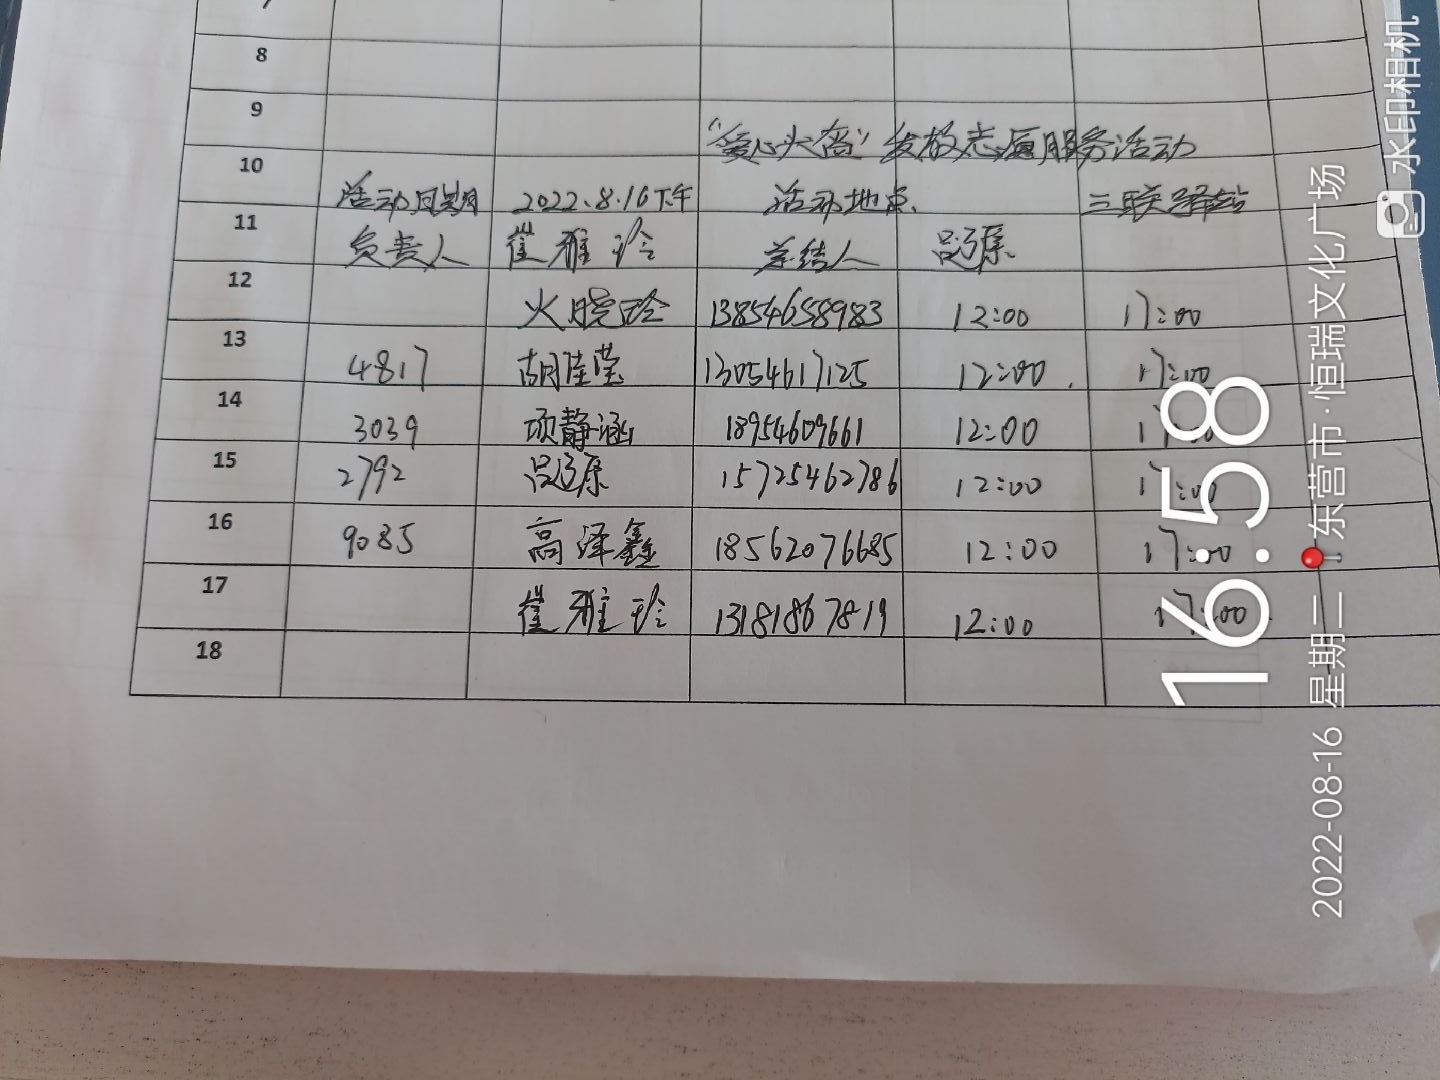 7
8
9
"爱心火窗" 发放志愿服务活动
10
活动日期 2022.8.16下午 活动地点 三联驿站
11
负责人 崔雅玲 总结人
12
火晓玲 13854658983 12:00 17:00
13
4817 胡佳莹 13054617125 12:00 17:00
14
3039 项静涵 18954609661 12:00 17:00
15
2792 15725462786 12:00 17:00
16
9085 高泽鑫 18562076685 12:00 17:00
17
崔雅玲 13181867819 12:00 17:00
18
16:58
2022-08-16 星期二 东营市·恒瑞文化广场
水印相机